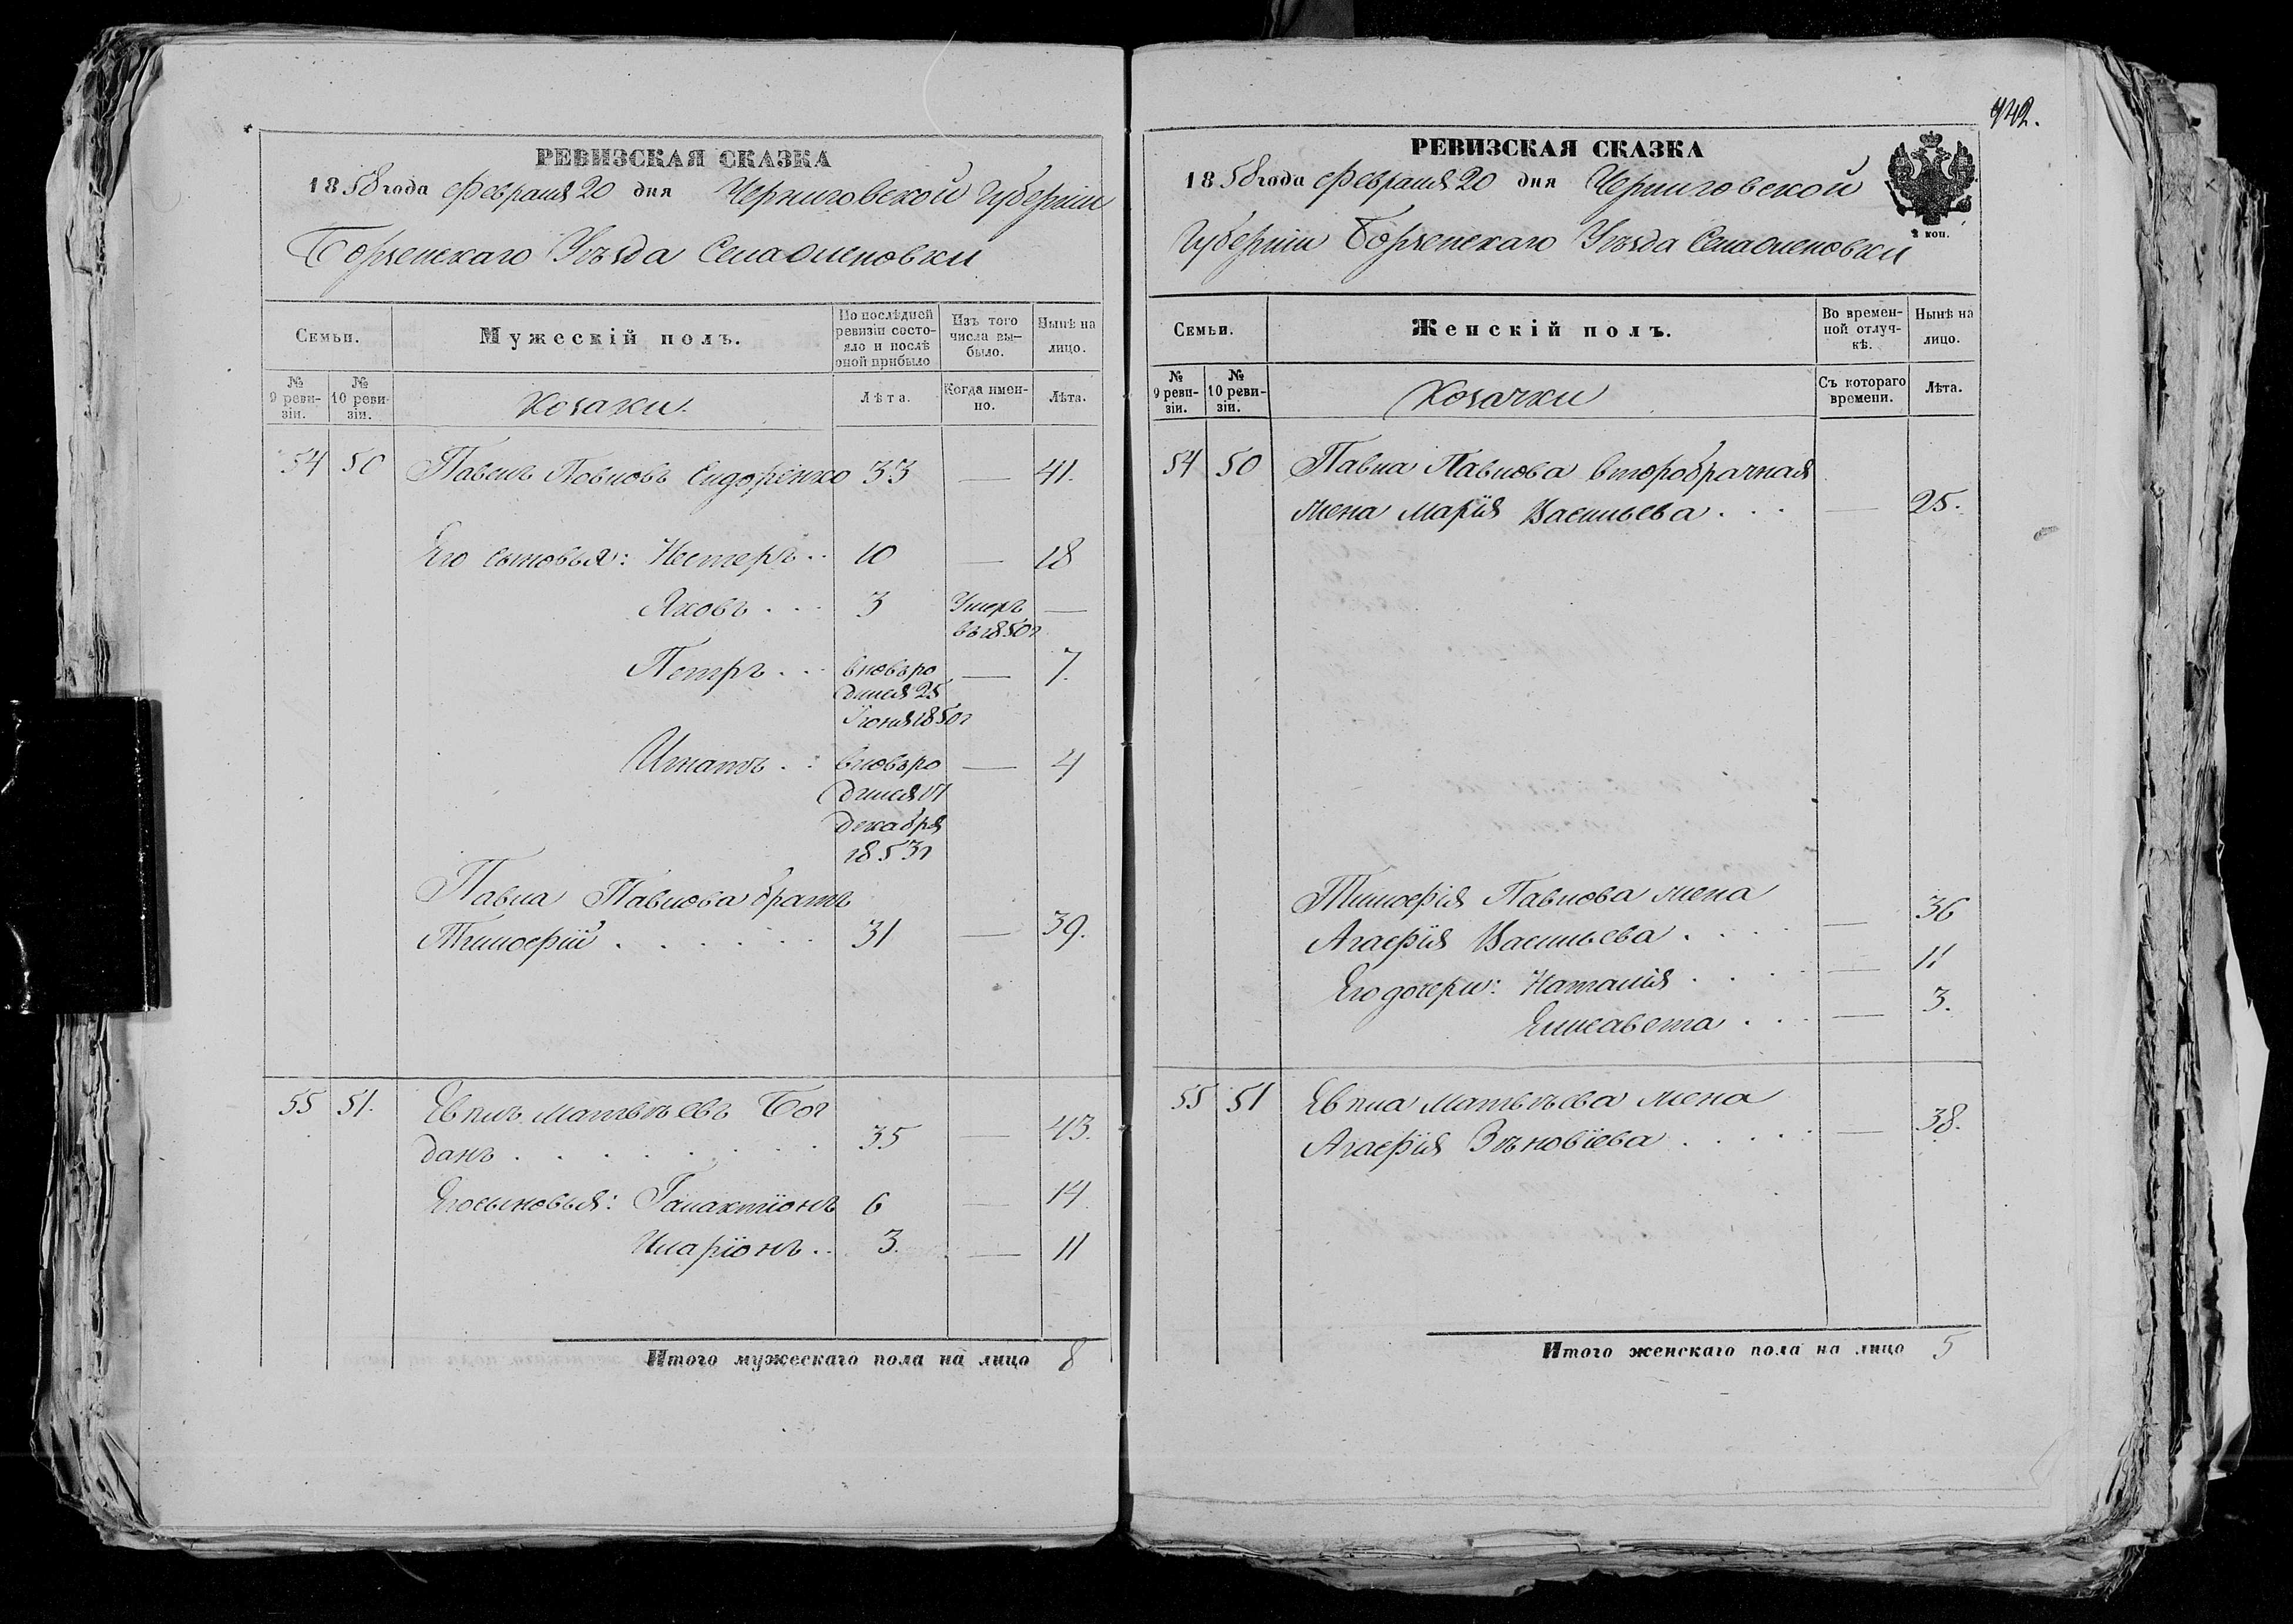 942.
РЕВИЗСКАЯ СКАЗКА
1858 года Февраля 20 дня Черниговской Губернии
Борзенскаго Уѣзда Села Оленовки
Семьи.
Мужескій полъ.
По послѣдней ревизіи состояло и послѣ оной прибыло
Изъ того числа выбыло.
Нынѣ на лицо.
№ 9 ревизіи.
№ 10 ревизіи.
Козаки.
Лѣта.
Когда именно.
Лѣта.
54 50 Павелъ Павловъ Сидоренко 33 — 41.
Его сыновья: Нестеръ .. 10 — 18
Яковъ ... 3 Умеръ —
въ 1850г
Петръ ... вновь ро — 7.
дился 25
Іюня 1850г
Игнатъ .. вновь ро — 4
дился 17
декабря
1853г
Павла Павлова братъ
Тимофій . . . . . . 31 — 39.
55 51. Евплъ Матвѣевъ Бог
данъ . . . . . . . 35 — 43.
Его сыновья: Галактіонъ 6 — 14.
Иларіонъ .. 3. — 11
Итого мужескаго пола на лицо 8
РЕВИЗСКАЯ СКАЗКА
1858 года Февраля 20 дня Черниговской
Губернии Борзенскаго Уѣзда Села Оленовки
2 коп.
Семьи.
Женскій полъ.
Во временной отлучкѣ.
Нынѣ на лицо.
№ 9 ревизіи.
№ 10 ревизіи.
Козачки
Съ котораго времени.
Лѣта.
54 50 Павла Павлова второбрачная
жена Марія Васильева . . . — 25.
Тимофія Павлова жена
Агафія Васильева . . . . — 36
Его дочери: Наталія . . . . — 11
Елисавета . . . — 3.
55 51 Евпла Матвѣева жена
Агафія Зѣновіева . . . . . — 38.
Итого женскаго пола на лицо 5